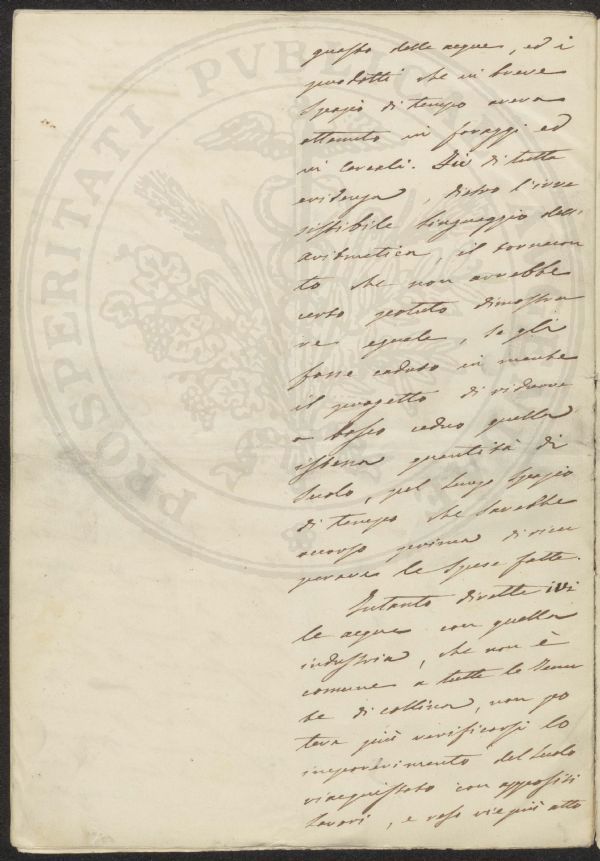 questo delle acque, ed i
prodotti che in breve
spazio di tempo aveva
ottenuto in foraggi ed
in cereali. Di tutta
evidenza, dietro l'irre
sistibile linguaggio dell'
aritmetica, il tornacon
to che non avrebbe
certo potuto dimostra
re eguale, se gli
fosse caduto in mente
il progetto di ridurre
a bosco ceduo quella
istessa quantità di
suolo, pel lungo spazio
di tempo che sarebbe
occorso prima di ricu
perare le spese fatte.
Intanto dirette ivi
le acque con quella
industria, che non è
comune a tutte le tenu
te di collina, non po
teva più verificarsi lo
impoverimento del suolo
riacquistato con appositi
lavori, e reso vie più atto
PROSPERITATI PUBLICAE